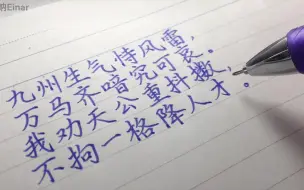 Einar
九州生气恃风雷，
万马齐喑究可哀。
我劝天公重抖擞，
不拘一格降人才。